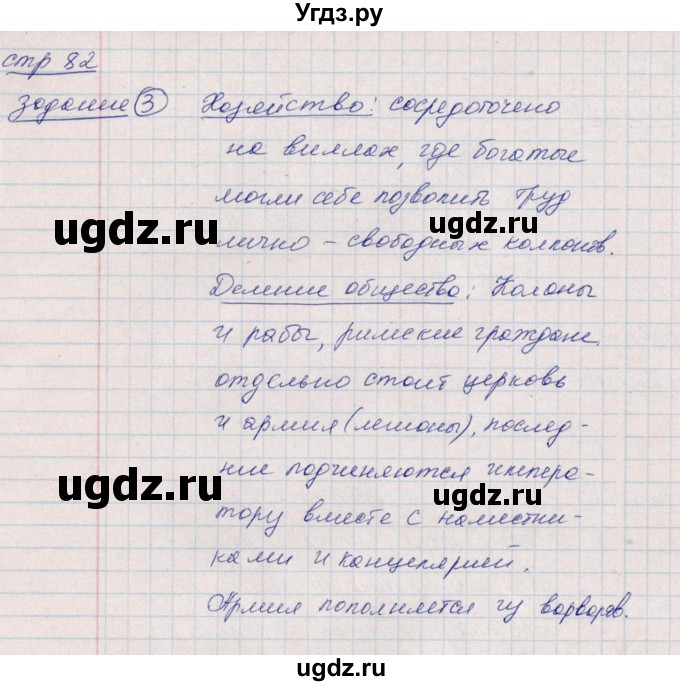 Угдз.ру
стр 82
Задание 3 Хозяйство: сосредоточено
на виллах, где богатые
могли себе позволить труд
лично - свободных колонов.
Деление общества: Колоны
и рабы, римские граждане.
отдельно стоит церковь
и армия (легионы), послед-
ние подчиняются импера-
тору вместе с наместни-
ками и канцелярией.
Армия пополняется из варваров.
ugdz.ru
ugdz.ru
ugdz.ru
ugdz.ru
ugdz.ru